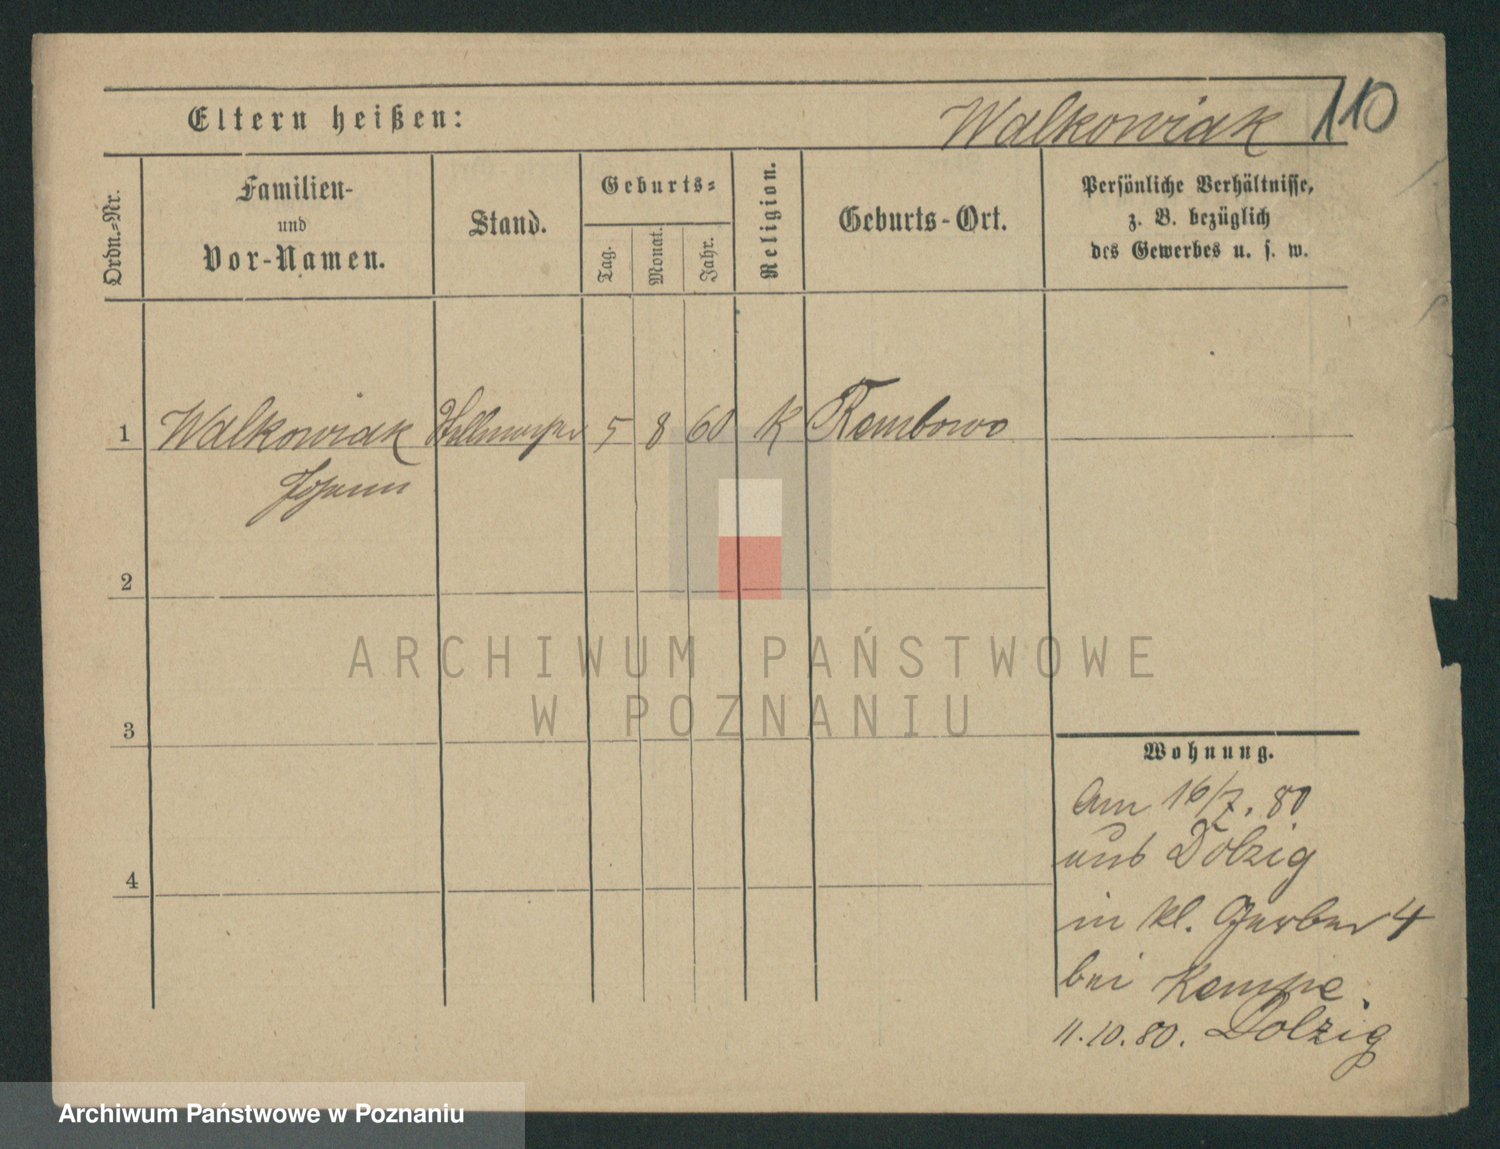 Eltern heißen:
Walkowiak 110
Ordn.-Nr.
Familien-
und
Vor-Namen.
Stand.
Geburts-
Tag.
Monat.
Jahr.
Religion.
Geburts-Ort.
Persönliche Verhältnisse,
z. B. bezüglich
des Gewerbes u. s. w.
1 Walkowiak 5 8 60 K Rembowo
Johann
2
3
4
Wohnung.
Am 16/7. 80
aus Dolzig
in kl. Gerber 4
bei Kempe.
11.10.80. Dolzig
ARCHIWUM PAŃSTWOWE
W POZNANIU
Archiwum Państwowe w Poznaniu